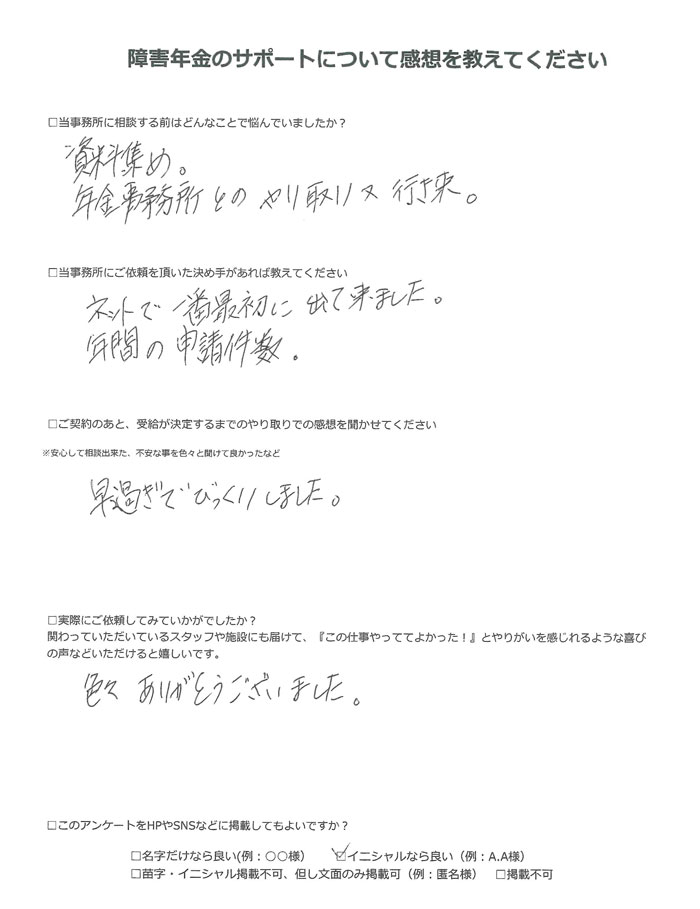 障害年金のサポートについて感想を教えてください
□当事務所に相談する前はどんなことで悩んでいましたか？
資料集め。
年金事務所とのやり取りや行き来。
□当事務所にご依頼を頂いた決め手があれば教えてください
ネットで一番最初に出て来ました。
年間の申請件数。
□ご契約のあと、受給が決定するまでのやり取りでの感想を聞かせてください
※安心して相談出来た、不安な事を色々と聞けて良かったなど
早過ぎてびっくりしました。
□実際にご依頼してみていかがでしたか？
関わっていただいているスタッフや施設にも届けて、『この仕事やっててよかった！』とやりがいを感じれるような喜び
の声などいただけると嬉しいです。
色々ありがとうございました。
□このアンケートをHPやSNSなどに掲載してもよいですか？
□名字だけなら良い(例：〇〇様） ☑イニシャルなら良い（例：A.A様）
□苗字・イニシャル掲載不可、但し文面のみ掲載可（例：匿名様） □掲載不可